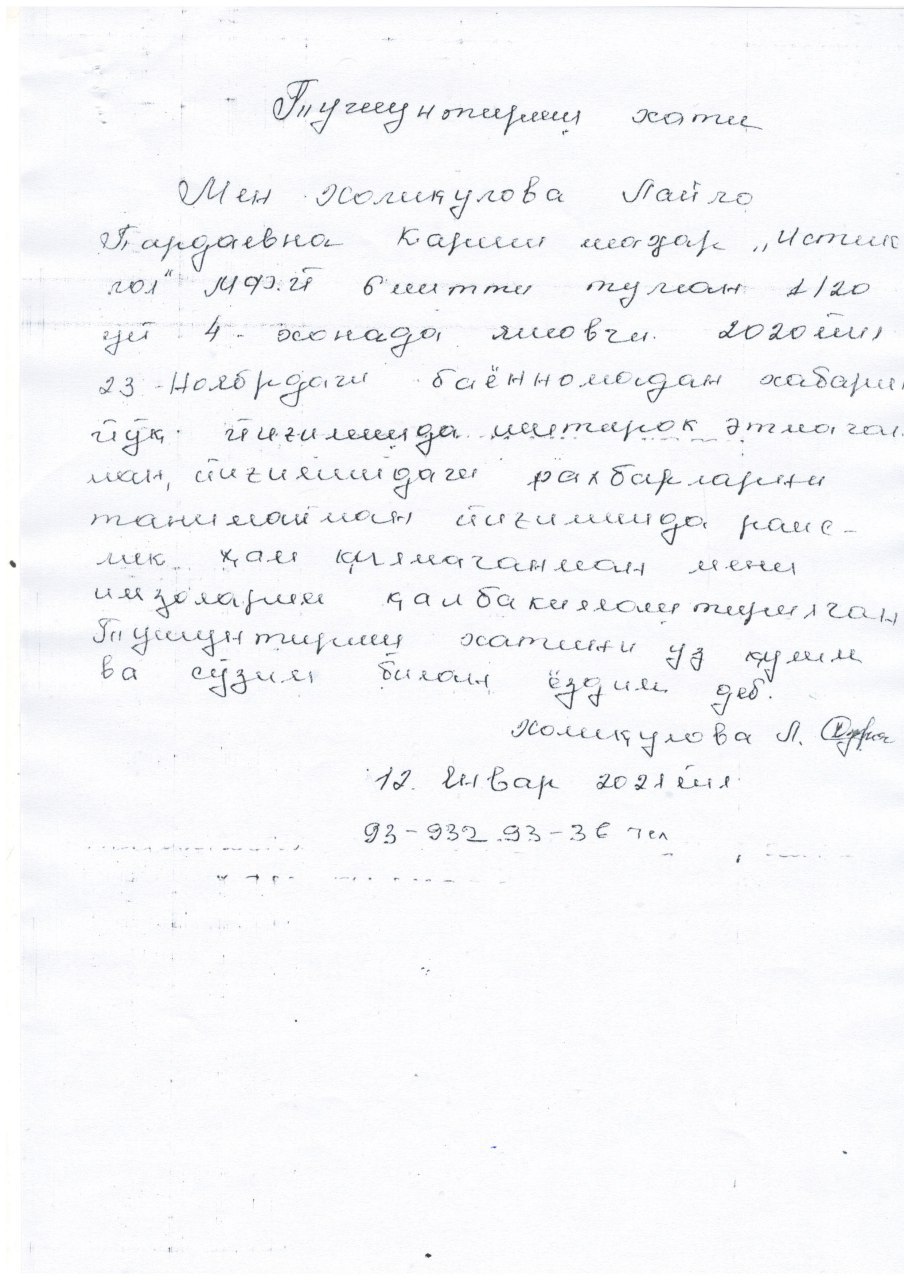 Тушунтириш хати
Мен Холикулова Лайло
Пардаевна Карши шахар „Истик
лол" МФЙ 6митти туман 1/20
уй 4-хонада яшовчи. 2020йил
23-Ноябрдаги баённомадан хабарим
йўқ. йиғилишда иштирок этмаган
ман, йиғилишдаги рахбарларни
танимайман йиғилишда раис-
лик ҳам қилмаганман мени
имзоларим қалбакилаштирилган
Тушунтириш хатини уз қулим
ва сўзим билан ёздим деб.
Холиқулова Л.
12. Январ 2021йил
93-932 93-36 тел